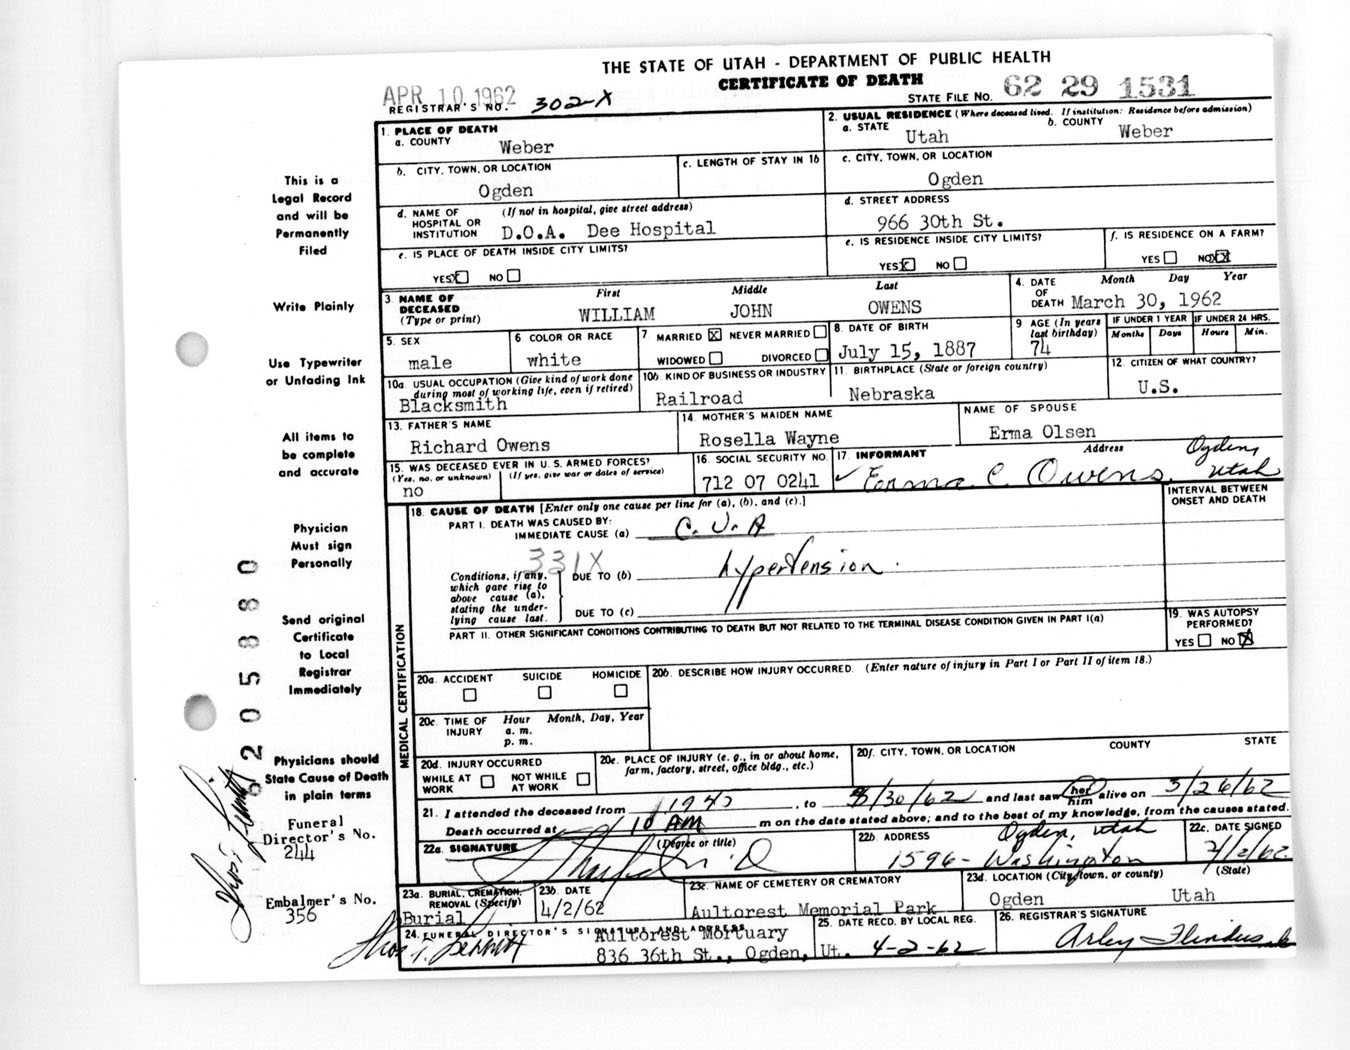 THE STATE OF UTAH - DEPARTMENT OF PUBLIC HEALTH
CERTIFICATE OF DEATH
APR 10 1962
REGISTRAR'S NO. 302-X
STATE FILE NO. 62 29 1531
This is a
Legal Record
and will be
Permanently
Filed
Write Plainly
Use Typewriter
or Unfading Ink
All items to
be complete
and accurate
Physician
Must sign
Personally
Send original
Certificate
to Local
Registrar
Immediately
Physicians should
State Cause of Death
in plain terms
Funeral
Director's No.
244
Embalmer's No.
356
6205880
1. PLACE OF DEATH
a. COUNTY Weber
2. USUAL RESIDENCE (Where deceased lived. If institution: Residence before admission)
a. STATE Utah b. COUNTY Weber
b. CITY, TOWN, OR LOCATION Ogden
c. LENGTH OF STAY IN 1b
c. CITY, TOWN, OR LOCATION
Ogden
d. NAME OF HOSPITAL OR INSTITUTION (If not in hospital, give street address)
D.O.A. Dee Hospital
d. STREET ADDRESS
966 30th St.
e. IS PLACE OF DEATH INSIDE CITY LIMITS?
YES X NO
e. IS RESIDENCE INSIDE CITY LIMITS?
YES X NO
f. IS RESIDENCE ON A FARM?
YES NO X
3. NAME OF DECEASED (Type or print)
First Middle Last
WILLIAM JOHN OWENS
4. DATE OF DEATH Month Day Year
March 30, 1962
5. SEX
male
6 COLOR OR RACE
white
7 MARRIED X NEVER MARRIED
WIDOWED DIVORCED
8 DATE OF BIRTH
July 15, 1887
9 AGE (In years last birthday)
74
IF UNDER 1 YEAR
Months Days
IF UNDER 24 HRS.
Hours Min.
10a. USUAL OCCUPATION (Give kind of work done during most of working life, even if retired)
Blacksmith
10b. KIND OF BUSINESS OR INDUSTRY
Railroad
11. BIRTHPLACE (State or foreign country)
Nebraska
12. CITIZEN OF WHAT COUNTRY?
U.S.
13. FATHER'S NAME
Richard Owens
14. MOTHER'S MAIDEN NAME
Rosella Wayne
NAME OF SPOUSE
Erma Olsen
15. WAS DECEASED EVER IN U.S. ARMED FORCES?
(Yes, no, or unknown) (If yes, give war or dates of service)
no
16. SOCIAL SECURITY NO.
712 07 0241
17. INFORMANT Address
Erma C Owens. Ogden, Utah
MEDICAL CERTIFICATION
18. CAUSE OF DEATH [Enter only one cause per line for (a), (b), and (c).]
INTERVAL BETWEEN ONSET AND DEATH
PART I. DEATH WAS CAUSED BY:
IMMEDIATE CAUSE (a) C.V.A
331X
Conditions, if any, which gave rise to above cause (a), stating the underlying cause last.
DUE TO (b) hypertension.
DUE TO (c)
PART II. OTHER SIGNIFICANT CONDITIONS CONTRIBUTING TO DEATH BUT NOT RELATED TO THE TERMINAL DISEASE CONDITION GIVEN IN PART I(a)
19. WAS AUTOPSY PERFORMED?
YES NO X
20a. ACCIDENT SUICIDE HOMICIDE
20b. DESCRIBE HOW INJURY OCCURRED. (Enter nature of injury in Part I or Part II of item 18.)
20c. TIME OF INJURY Hour Month, Day, Year
a. m.
p. m.
20d. INJURY OCCURRED
WHILE AT WORK NOT WHILE AT WORK
20e. PLACE OF INJURY (e. g., in or about home, farm, factory, street, office bldg., etc.)
20f. CITY, TOWN, OR LOCATION COUNTY STATE
21. I attended the deceased from , to 3/30/62 and last saw her him alive on 3/26/62
Death occurred at 10 AM m on the date stated above; and to the best of my knowledge, from the causes stated.
22a. SIGNATURE (Degree or title)
22b. ADDRESS Ogden, Utah
1596- Washington
22c. DATE SIGNED
4/2/62.
23a. BURIAL, CREMATION, REMOVAL (Specify)
Burial
23b. DATE
4/2/62
23c. NAME OF CEMETERY OR CREMATORY
Aultorest Memorial Park
23d. LOCATION (City, town, or county) (State)
Ogden Utah
24. FUNERAL DIRECTOR'S SIGNATURE AND ADDRESS
Aultorest Mortuary
836 36th St., Ogden, Ut.
25. DATE RECD. BY LOCAL REG.
4-2-62
26. REGISTRAR'S SIGNATURE